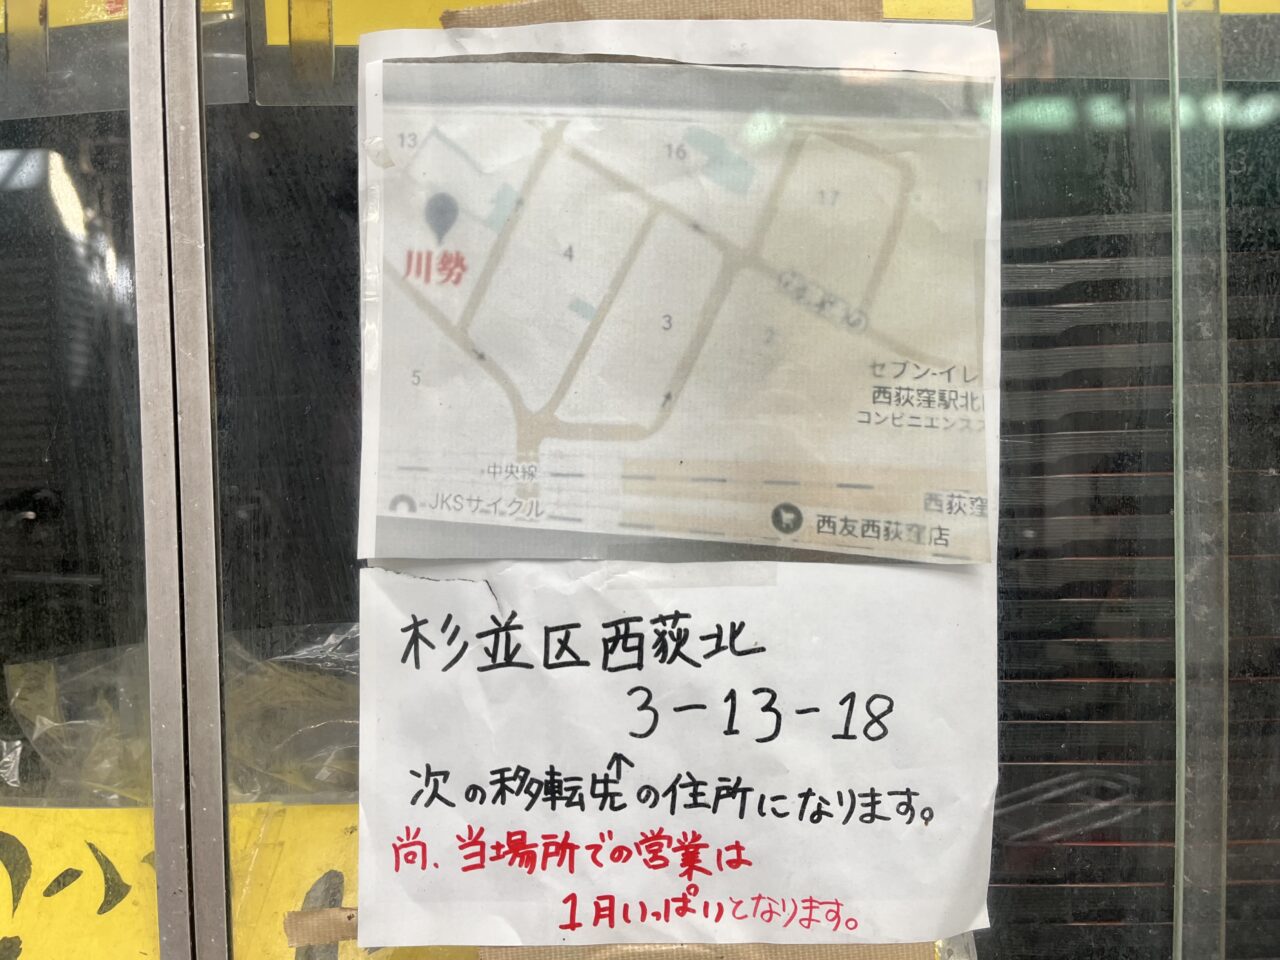 13
16
17
4
川勢
3
2
5
セブン-イレ
西荻窪駅北
コンビニエンスス
中央線
JKSサイクル
西荻窪
西友西荻窪店
杉並区西荻北
3-13-18
↑
次の移転先の住所になります。
尚、当場所での営業は
1月いっぱいとなります。